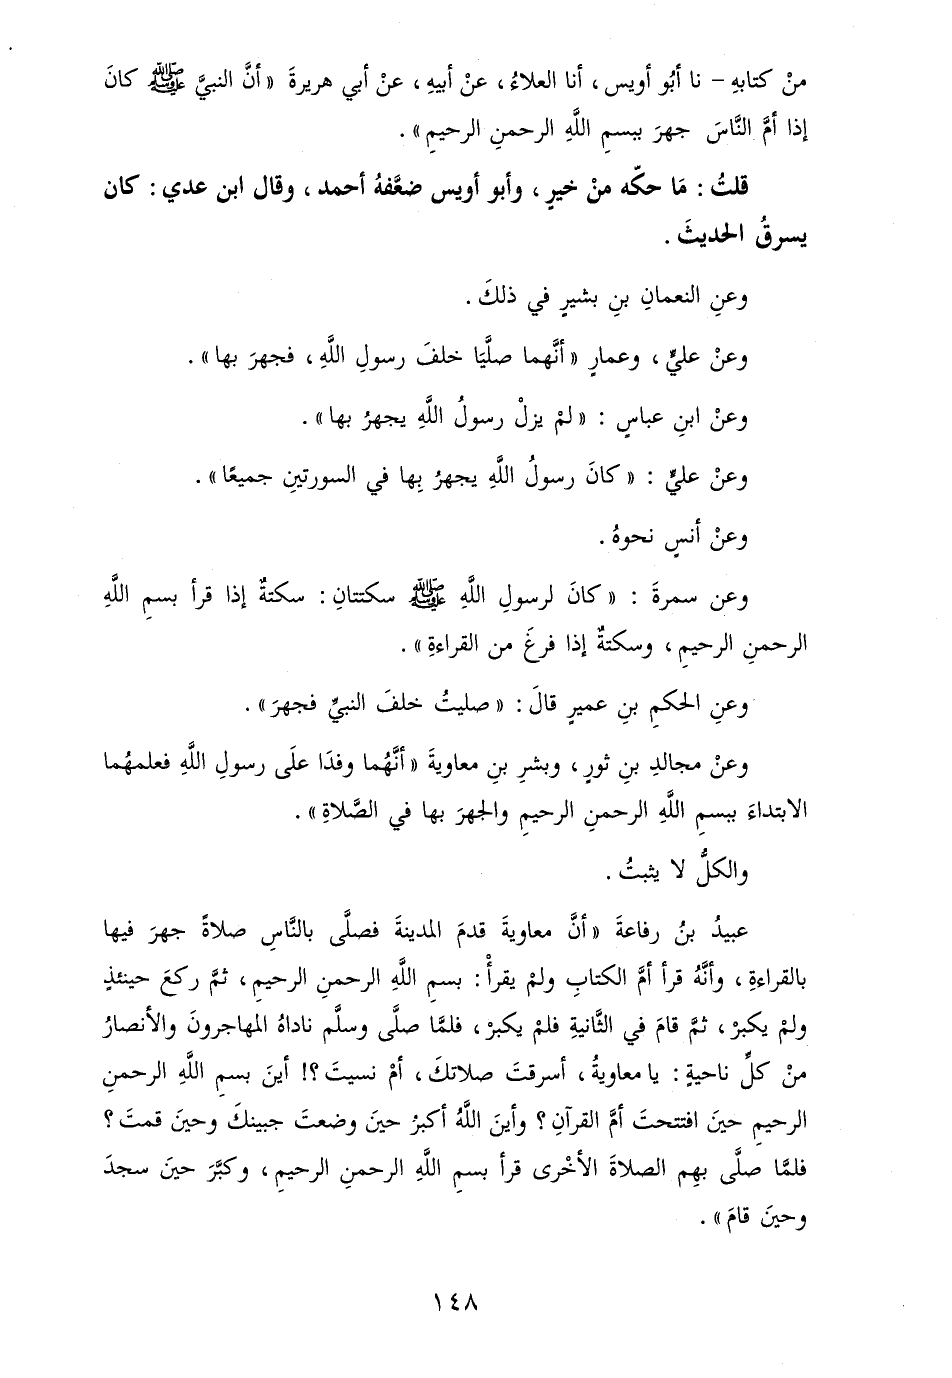 منْ كتابهِ – نا أبُو أويس، أنا العلاءُ، عنْ أبيهِ، عنْ أبي هريرةَ «أنَّ النبيَّ ﷺ كانَ
إذا أمَّ النَّاسَ جهرَ ببسمِ اللَّهِ الرحمنِ الرحيمِ».
قلتُ: مَا حكّه منْ خيرٍ، وأبو أويس ضعَّفهُ أحمد، وقال ابن عدي: كان
يسرقُ الحديثَ.
وعنِ النعمانِ بنِ بشيرٍ في ذلكَ.
وعنْ عليٍّ، وعمارٍ «أنَّهما صلَّيَا خلفَ رسولِ اللَّهِ، فجهرَ بها».
وعنْ ابنِ عباسٍ: «لمْ يزلْ رسولُ اللَّهِ يجهرُ بها».
وعنْ عليٍّ: «كانَ رسولُ اللَّهِ يجهرُ بِها في السورتينِ جميعًا».
وعنْ أنسٍ نحوهُ.
وعن سمرةَ: «كانَ لرسولِ اللَّهِ ﷺ سكتتانِ: سكتةٌ إذا قرأ بسمِ اللَّهِ
الرحمنِ الرحيمِ، وسكتةٌ إذا فرغَ من القراءةِ».
وعنِ الحكمِ بنِ عميرٍ قالَ: «صليتُ خلفَ النبيِّ فجهرَ».
وعنْ مجالدِ بنِ ثورٍ، وبشرِ بنِ معاويةَ «أنَّهُما وفدَا علَى رسولِ اللَّهِ فعلمهُما
الابتداءَ ببسمِ اللَّهِ الرحمنِ الرحيمِ والجهرَ بها في الصَّلاةِ».
والكلُّ لا يثبتُ.
عبيدُ بنُ رفاعةَ «أنَّ معاويةَ قدمَ المدينةَ فصلَّى بالنَّاسِ صلاةً جهرَ فيها
بالقراءةِ، وأنَّهُ قرأ أمَّ الكتابِ ولمْ يقرأْ: بسمِ اللَّهِ الرحمنِ الرحيمِ، ثمَّ ركعَ حينئذٍ
ولمْ يكبرْ، ثمَّ قامَ في الثَّانيةِ فلمْ يكبرْ، فلمَّا صلَّى وسلَّم ناداهُ المهاجرونَ والأنصارُ
منْ كلِّ ناحيةٍ: يا معاويةُ، أسرقتَ صلاتكَ، أمْ نسيتَ؟! أينَ بسمِ اللَّهِ الرحمنِ
الرحيمِ حينَ افتتحتَ أمَّ القرآنِ؟ وأينَ اللَّهُ أكبرُ حينَ وضعتَ جبينكَ وحينَ قمتَ؟
فلمَّا صلَّى بهِم الصلاةَ الأخْرى قرأ بسمِ اللَّهِ الرحمنِ الرحيمِ، وكبَّرَ حينَ سجدَ
وحينَ قامَ».
١٤٨